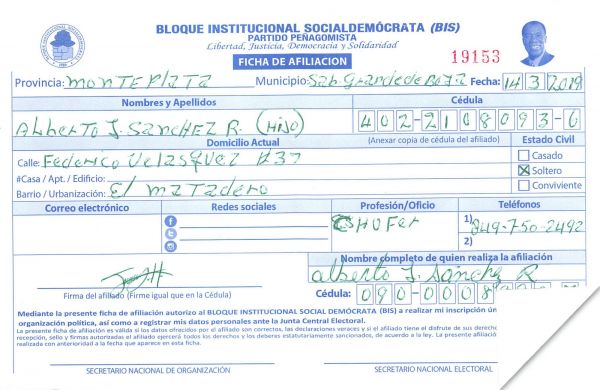 BLOQUE INSTITUCIONAL SOCIALDEMÓCRATA (BIS)
PARTIDO PEÑAGOMISTA
Libertad, Justicia, Democracia y Solidaridad
FICHA DE AFILIACION
19153
Provincia: MONTEPLATA Municipio: Sab Grande de Boya Fecha: 14 3 2019
Nombres y Apellidos Cédula
Alberto J. Sanchez R. (Hijo) 402-2108093-6
Domicilio Actual (Anexar copia de cédula del afiliado) Estado Civil
Calle: Federico Velasquez #37 Casado
#Casa / Apt. / Edificio: Soltero
Barrio / Urbanización: El matadero Conviviente
Correo electrónico Redes sociales Profesión/Oficio Teléfonos
CHOFer 1) 849-750-2492
2)
Nombre completo de quien realiza la afiliación
alberto J. Sánchez R
Firma del afiliado (Firme igual que en la Cédula) Cédula: 090-0008
Mediante la presente ficha de afiliación autorizo al BLOQUE INSTITUCIONAL SOCIAL DEMÓCRATA (BIS) a realizar mi inscripción
organización política, así como a registrar mis datos personales ante la Junta Central Electoral.
La presente ficha de afiliación es válida si los datos ofrecidos por el afiliado son correctos, las declaraciones veraces y si el afiliado tiene el disfrute de sus
recepción, sello y firmas autorizadas el afiliado ejercerá todos los derechos y los deberes estatutariamente sancionados, de acuerdo a la ley. La presente
realizada con anterioridad a la fecha que aparece en esta ficha.
SECRETARIO NACIONAL DE ORGANIZACIÓN SECRETARIO NACIONAL ELECTORAL